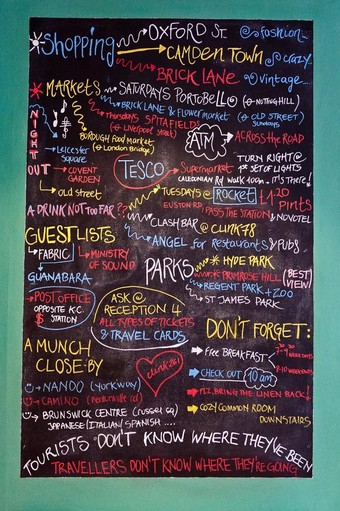 Shopping
OXFORD ST. fashion
CAMDEN TOWN crazy
BRICK LANE vintage
MARKETS
SATURDAYS PORTOBELLO (NOTTING HILL)
BRICK LANE & FLOWER MARKET (OLD STREET) SUNDAYS
Thursdays SPITAFIELDS (Liverpool street)
BOROUGH Food market (London Bridge)
NIGHT OUT
Leicester Square
COVENT GARDEN
old street
ATM
ACROSS THE ROAD
TESCO
Supermarket
TURN RIGHT @ 1st SET OF LIGHTS
CALEDONIAN Rd WALK 400m.. IT'S THERE!
A DRINK NOT TOO FAR??
TUESDAYS @ ROCKET
£1,20 pints
EUSTON RD. (PASS THE STATION) & NOVOTEL
CLASH BAR @ CLINK78
ANGEL for Restaurants & Pubs
GUESTLISTS
FABRIC
MINISTRY OF SOUND
GUANABARA
PARKS
HYDE PARK
PRIMROSE HILL (BEST VIEW)
REGENT PARK + ZOO
ST JAMES PARK
POST OFFICE
OPPOSITE K.C. STATION
$
ASK @
RECEPTION 4
ALL TYPES OF TICKETS
& TRAVEL CARDS
DON'T FORGET:
free BREAKFAST
CHECK OUT 10am
PLZ, BRING THE LINEN BACK!
COZY COMMON ROOM DOWNSTAIRS
A MUNCH
CLOSE-BY
clink261
NANDO (York way)
CAMINO
BRUNSWICK CENTRE (russel sq)
JAPANESE/ITALIAN/SPANISH ....
TOURISTS DON'T KNOW WHERE THEY'VE BEEN
TRAVELLERS DON'T KNOW WHERE THEY'RE GOING